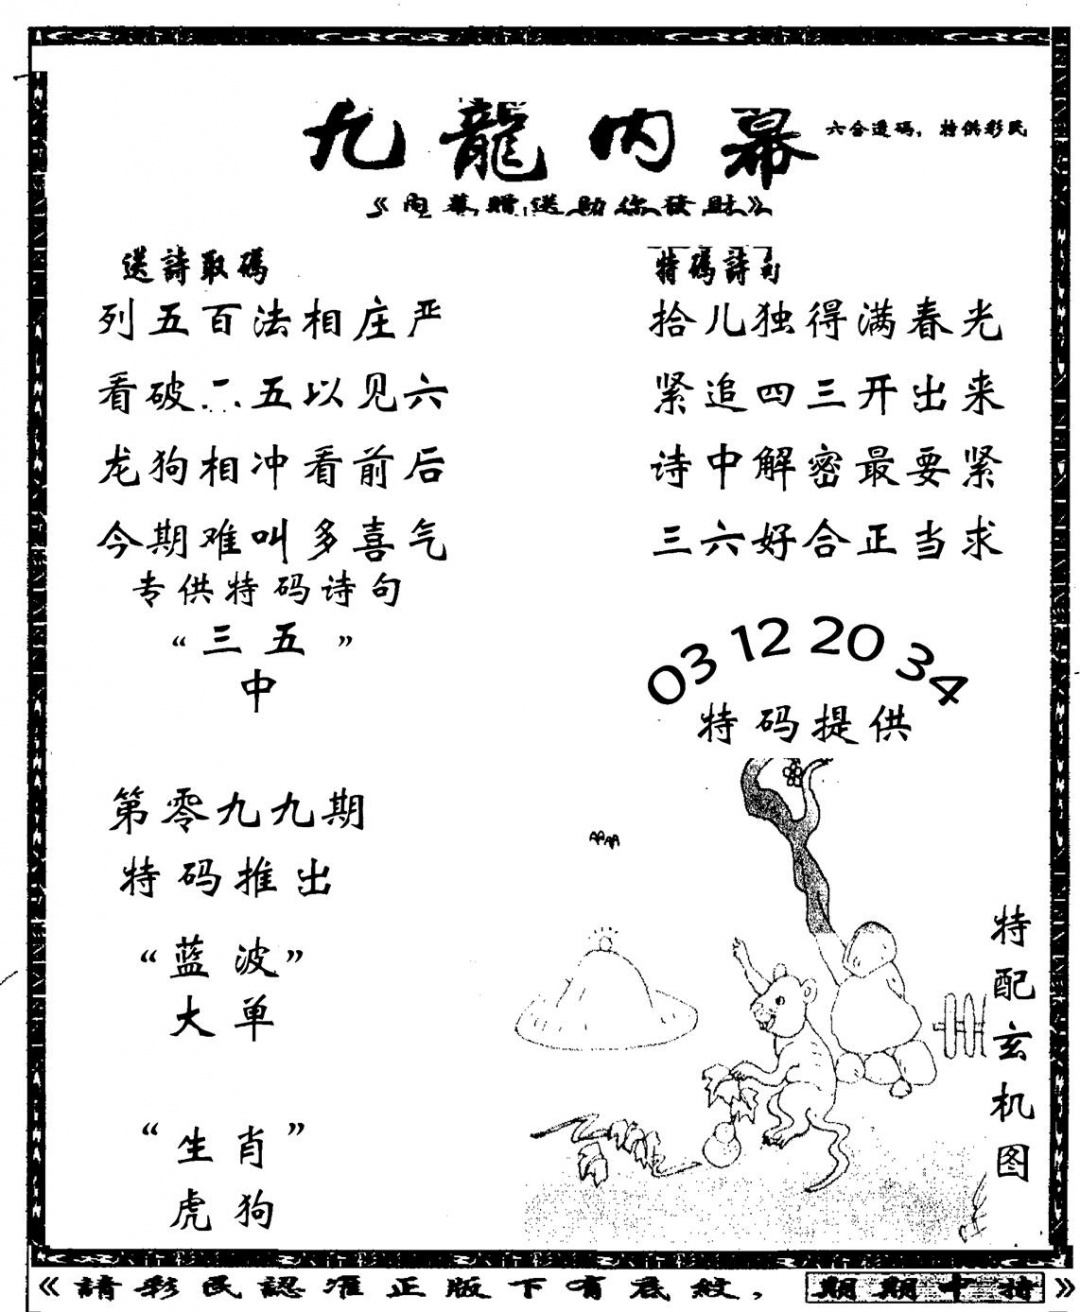 九龍内幕
六合透码，特供彩民
《内幕贈送助你發財》
送詩取碼
列五百法相庄严
看破二五以见六
龙狗相冲看前后
今期难叫多喜气
专供特码诗句
“三五”
中
第零九九期
特码推出
“蓝波”
大单
“生肖”
虎狗
特碼詩句
拾儿独得满春光
紧追四三开出来
诗中解密最要紧
三六好合正当求
03 12 20 34
特码提供
特配玄机图
《請彩民認准正版下有底紋，期期中特》